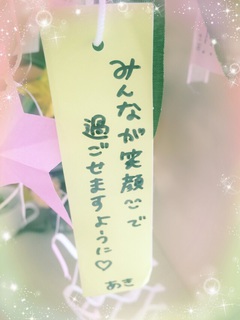 みんなが笑顔で
過ごせますように♡
あき